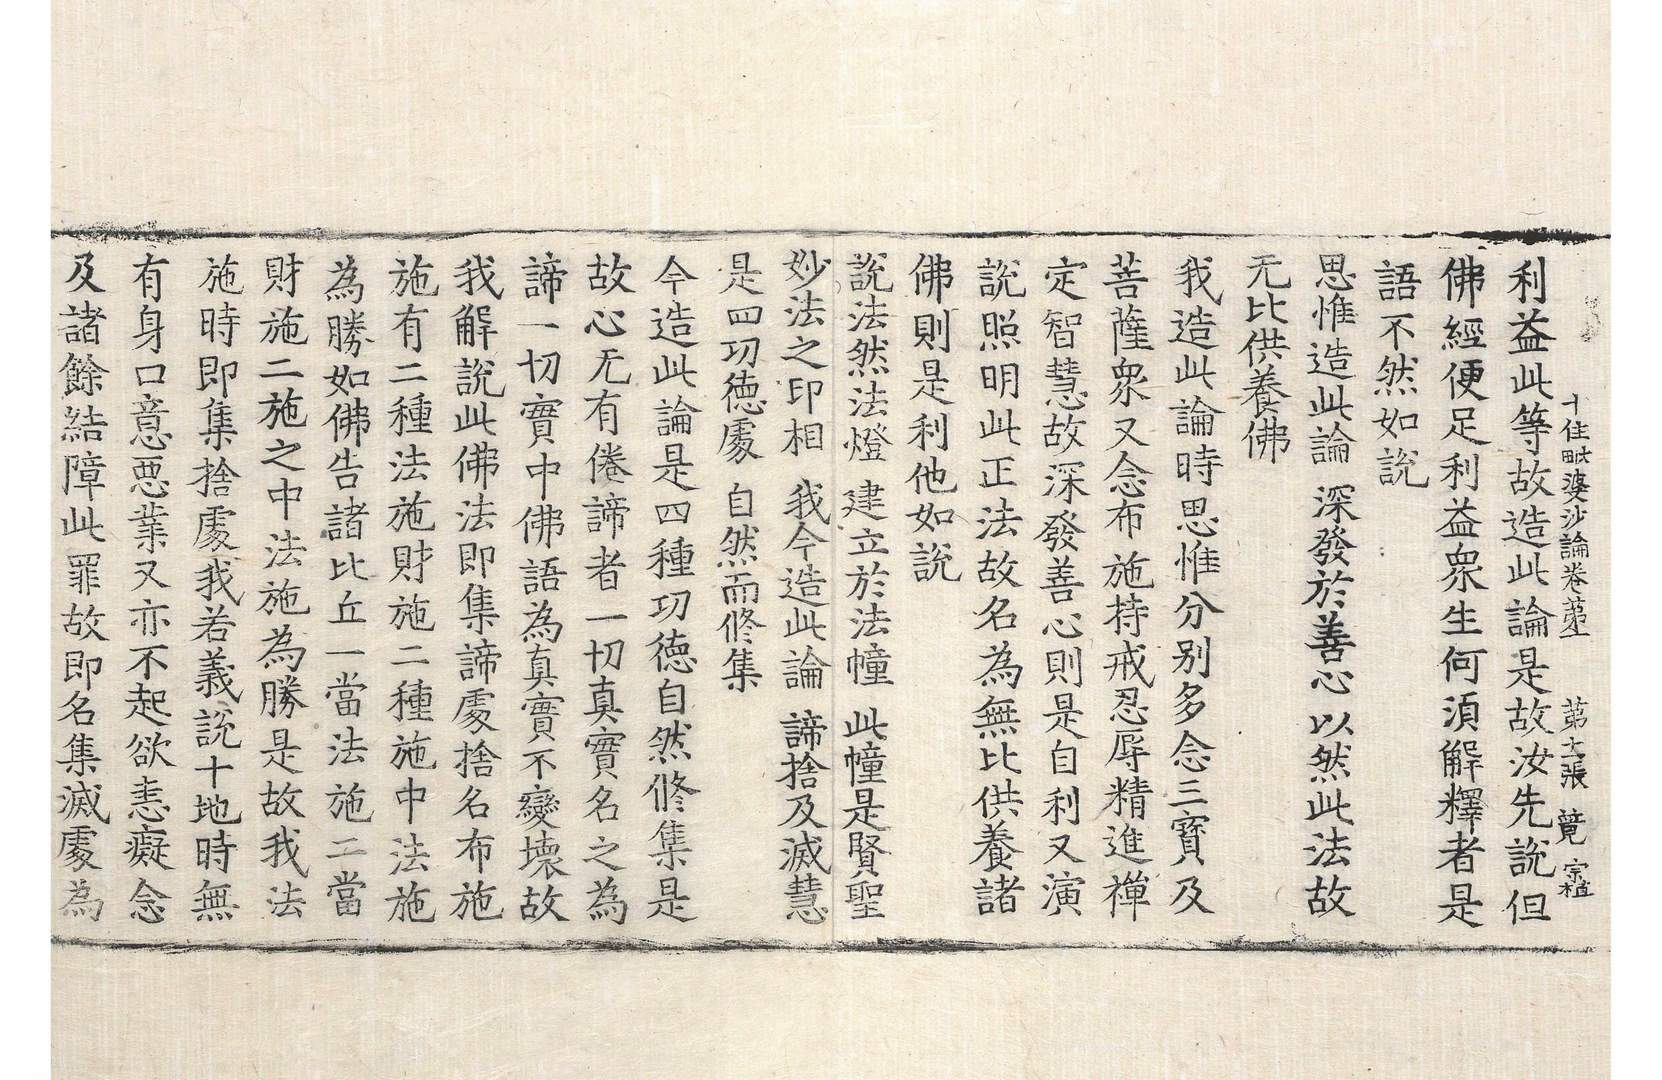 十住毗婆沙論卷苐一 苐十二張 竟 宗植
利益此等故造此論是故汝先說但
佛經便足利益衆生何湏解釋者是
語不然如說
思惟造此論 深發於善心 以然此法故
无比供養佛
我造此論時思惟分別多念三寶及
菩薩衆又念布施持戒忍辱精進禪
定智慧故深發善心則是自利又演
說照明此正法故名為無比供養諸
佛則是利他如說
說法然法燈 建立於法幢 此幢是賢聖
妙法之印相 我今造此論 諦捨及滅慧
是四功德處 自然而修集
今造此論是四種功德自然修集是
故心无有倦諦者一切真實名之為
諦一切實中佛語為真實不變壞故
我解說此佛法即集諦處捨名布施
施有二種法施財施二種施中法施
為勝如佛告諸比丘一當法施二當
財施二施之中法施為勝是故我法
施時即集捨處我若義說十地時無
有身口意惡業又亦不起欲恚癡念
及諸餘結障此罪故即名集滅處為